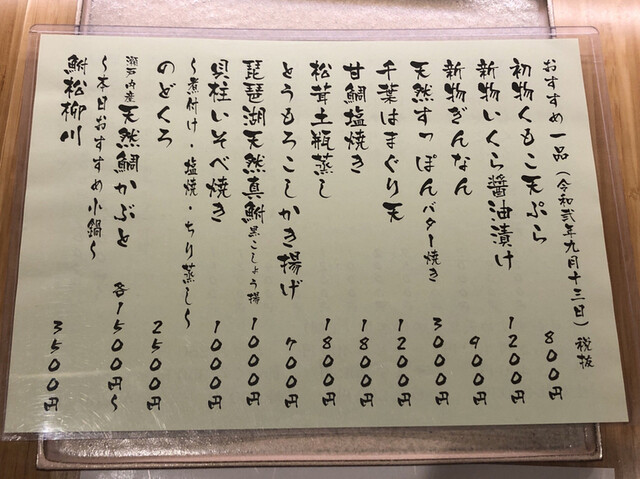 おすすめ一品(令和弐年九月十三日)税抜
初物くもこ天ぷら 800円
新物いくら醤油漬け 1200円
新物ぎんなん 900円
天然すっぽんバター焼き 3000円
千葉はまぐり天 1200円
甘鯛塩焼き 1800円
松茸土瓶蒸し 1800円
とうもろこしかき揚げ 700円
琵琶湖天然真鮒黒こしょう揚 1000円
貝柱いそべ焼き 1000円
〜煮付け・塩焼・ちり蒸し〜
のどくろ 2500円
瀬戸内産天然鯛かぶと 各1500円〜
〜本日おすすめ小鍋〜
鮒松柳川 3500円